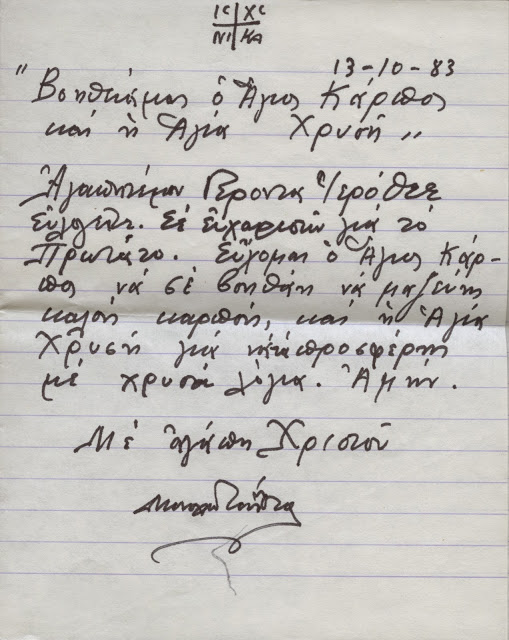 IC XC
NI KA
13-10-83
"Βοήθειά μας ὁ Ἅγιος Κάρπος
καί ἡ Ἁγία Χρυσῆ"
Γέροντα Ἱερόθεε
Εὐλογεῖτε. Σέ εὐχαριστῶ γιά τό
Πρωτᾶτο. Εὔχομαι ὁ Ἅγιος Κάρ-
πος νά σέ βοηθάη νά μαζεύης
καλούς καρπούς, καί ἡ Ἁγία
Χρυσῆ γιά νά προσφέρης
μέ χρυσά λόγια. Ἀμήν.
Μέ ἀγάπη Χριστοῦ